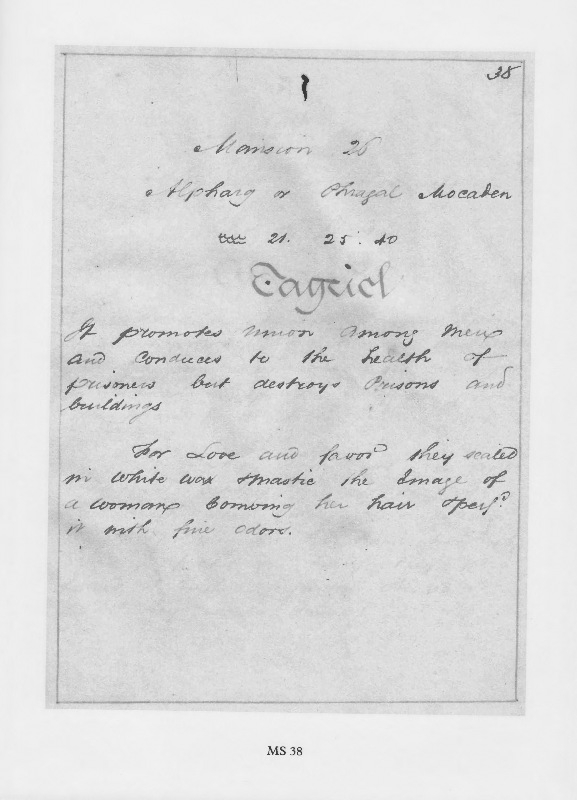 38
Mansion 26
Alpharg or Phragal Mocaden
♒ 21. 25. 40
Tagriel
It promotes union among men
and conduces to the health of
prisoners but destroys Prisons and
buildings
For Love and favor they sealed
in white wax & mastic the Image of
a woman Comving her hair & perf.d
it with fine odors.
MS 38